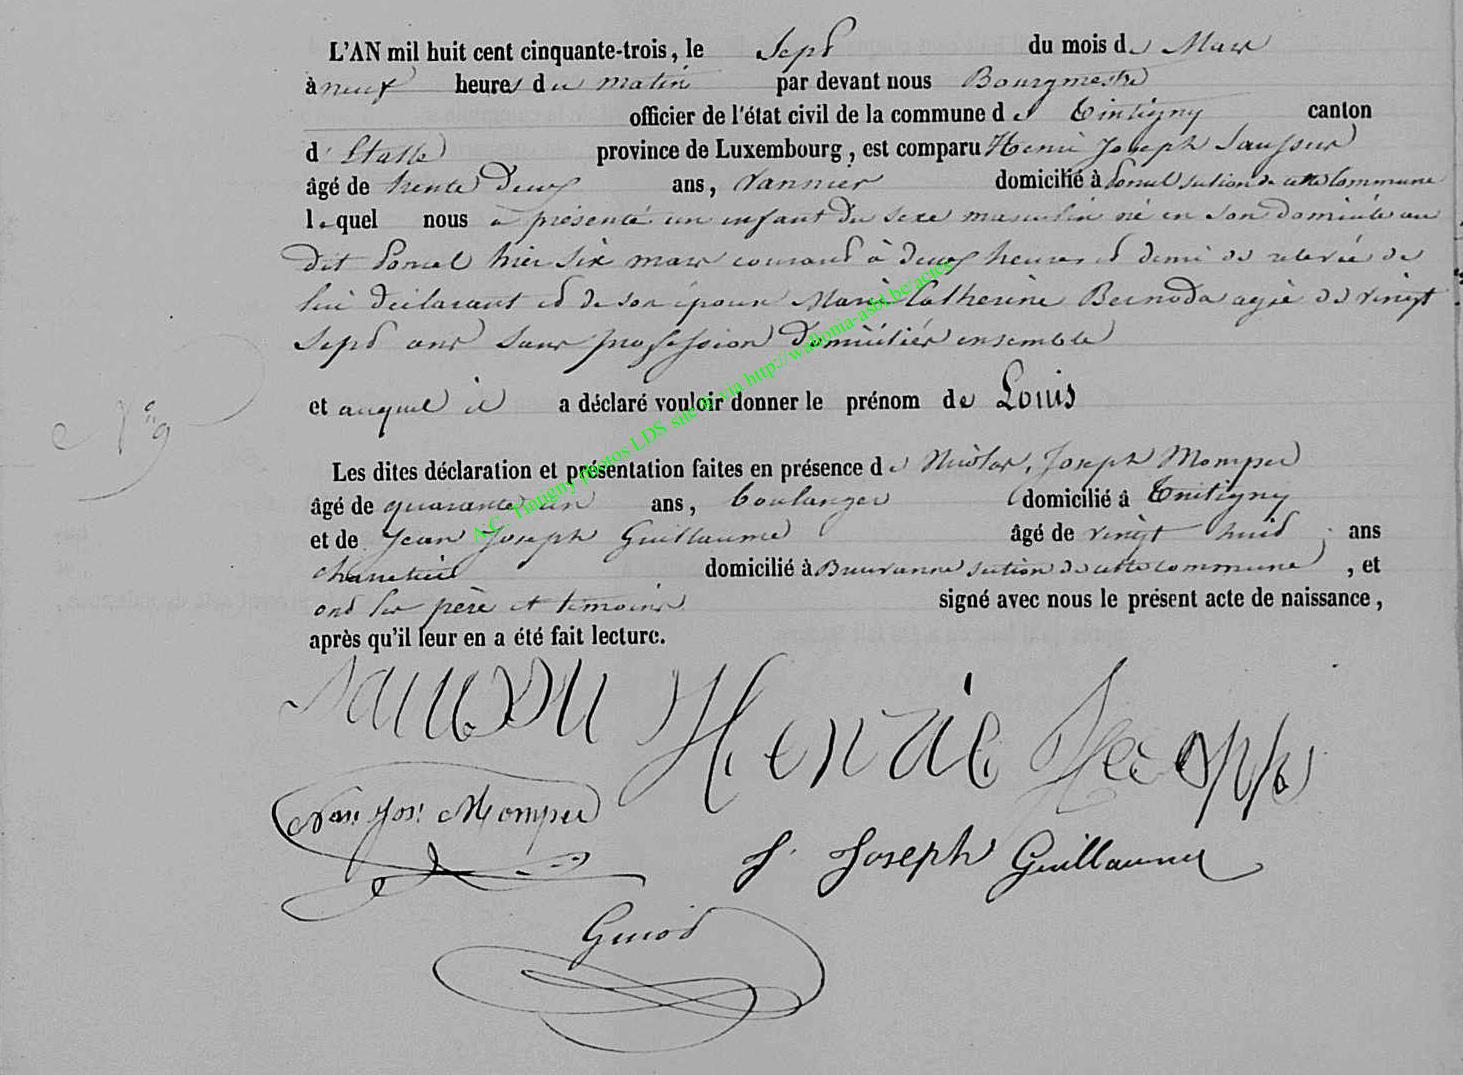 L'AN mil huit cent cinquante-trois, le Sept du mois de Mars
à neuf heures du matin par devant nous Bourgmestre
officier de l'état civil de la commune de Tintigny canton
d'Etalle province de Luxembourg, est comparu Henri Joseph
âgé de trente Deux ans, Vannier domicilié à section de cette Commune
lequel nous a présenté un enfant du sexe masculin né en son domicile au
dit hier six mars courant à deux heures et demi de relevée de
lui déclarant et de son épouse Marie Catherine agée de vingt
sept ans sans profession Domiciliés ensemble
et auquel il a déclaré vouloir donner le prénom de Louis
N° 9
Les dites déclaration et présentation faites en présence de Nicolas, Joseph Momper
âgé de quarante un ans, boulanger domicilié à Tintigny
et de Jean Joseph Guillaume âgé de vingt huit ans
domicilié à section de cette commune, et
ont les père et témoins signé avec nous le présent acte de naissance,
après qu'il leur en a été fait lecture.
Henri
Jos. Momper
J. Joseph Guillaume
A.C. Tintigny photos LDS site © via http://wallonia-asbl.be/actes